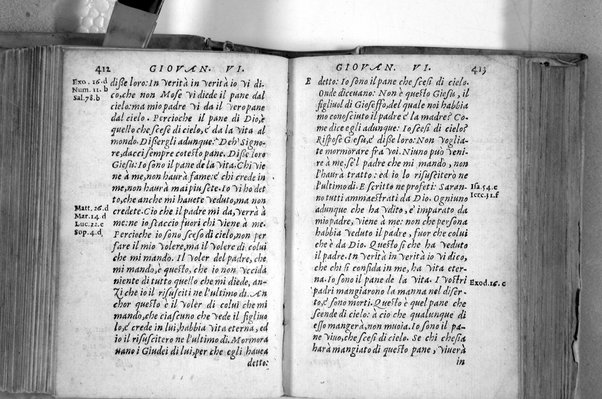 412 GIOVAN. VI.
Exo. 16.d
Num. 11.b
Sal. 78.b
diße loro: In verità in verità io vi di
co, che non Mose vi diede il pane dal
cielo: ma mio padre vi da il vero pane
dal cielo. Percioche il pane di Dio, è
quello che scese di cielo, & da la vita al
mondo. Dißergli adunque. Deh' Signo-
re, dacci sempre cotesto pane. Diße loro
Giesu: Io sono il pane de la vita. Chi vie
ne à me, non haurà fame: & chi crede in
me, non haurà mai piu sete. Io vi ho det
to, che anche mi hauete veduto, ma non
Matt. 26.d
Mar. 14.d
Luc. 22.c
Sop. 4.d
credete. Cio che il padre mi da, verrà à
me: ne io scaccio fuori chi viene à me.
Percioche io sono sceso di cielo, non per
fare il mio volere, ma il volere di colui
che mi mando. Il voler del padre, che
mi mando, è questo, che io non vccida
niente di tutto quello che mi diede, an-
Zi che io il risusciti ne l'ultimo dì. An
chor questo è il voler di colui che mi
mando, che ciascuno che vede il figliuo
lo, & crede in lui, habbia vita eterna, ed
io il risusciterò ne l'ultimo dì. Mormora
uano i Giudei di lui, per che egli hauea
detto:
GIOVAN. VI. 413
E detto: Io sono il pane che scesi di cielo.
Onde diceuano: Non è questo Giesu, il
figliuol di Gioseffo, del quale noi habbia
mo conosciuto il padre & la madre? Co-
me dice egli adunque: Io scesi di cielo?
Rispose Giesu, & diße loro: Non voglia-
te mormorare fra voi. Niuno può veni-
re à me, se'l padre che mi mando, non
l'haurà tratto: ed io lo risusciterò ne
l'ultimo dì. E scritto ne profeti: Saran-
Isa. 54.c
Iere. 31.f
no tutti ammaestrati da Dio. Ogniuno
adunque che ha vdito, & imparato da
mio padre, viene à me: non che persona
habbia veduto il padre, fuor che colui
che è da Dio. Questo sì che ha veduto
il padre. In verità in verità io vi dico,
che chi si confida in me, ha vita eter-
na. Io sono il pane de la vita. I vostri
Exod. 16.c
padri mangiarono la manna nel diser-
to, & sono morti. Questo è quel pane che
scende di cielo: à cio che qualunque di
esso mangerà, non muoia. Io sono il pa-
ne viuo, che scesi di cielo. Se chi che sia
harà mangiato di questo pane, viuerà
in